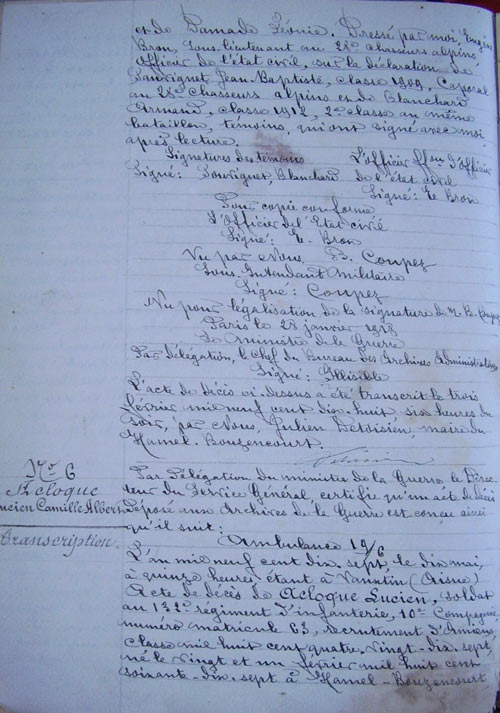 et de Damade Léonie. Dressé par moi, Eugène
Bron, sous-lieutenant au 28e chasseurs alpins
Officier de l'état civil, sur la déclaration de
Souvignet Jean-Baptiste, classe 1909, Caporal
au 28e chasseurs alpins et de Blanchard
Armand, classe 1912, 2e classe au même
bataillon, témoins, qui ont signé avec moi
après lecture.
Signatures des témoins L'officier ffon d'officier
Signé: Souvignet, Blanchard de l'état civil
Signé: E. Bron
Pour copie conforme
L'Officier de l'Etat civil
Signé: E. Bron
Vu par Nous, B. Coupez
Sous-Intendant Militaire
Signé: Coupez
Vu pour légalisation de la signature de M. B. Coupez
Paris le 28 janvier 1918
Le Ministre de la Guerre
Par délégation, le chef du Bureau des Archives Administratives
Signé: Illisible
L'acte de décès ci-dessus a été transcrit le trois
février mil neuf cent dix-huit, six heures du
soir, par Nous, Julien Detoisien, maire du
Hamel-Bouzencourt.
No 6
Acloque
Lucien Camille Albert
Transcription.
Par Délégation du ministre de la Guerre, le Direc-
teur du Service Général, certifie qu'un acte de décès
déposé aux Archives de la Guerre est conçu ainsi
qu'il suit:
Ambulance 19/6
L'an mil neuf cent dix-sept, le dix mai,
à quinze heures étant à (Aisne)
Acte de décès de Acloque Lucien, soldat
au 132e régiment d'infanterie, 10e Compagnie
numéro matricule 63, recrutement d'Amiens
classe mil huit cent quatre-vingt-dix-sept
né le vingt et un février mil huit cent
soixante-dix-sept à Hamel-Bouzencourt